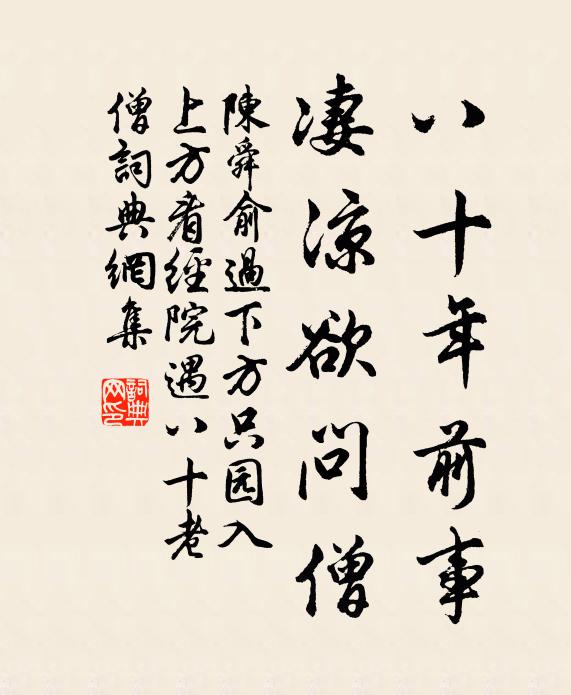 八十年前事
凄涼欲問僧
陳舜俞過下方只园入
上方看經院遇八十老
僧詞典網集
詞典网印